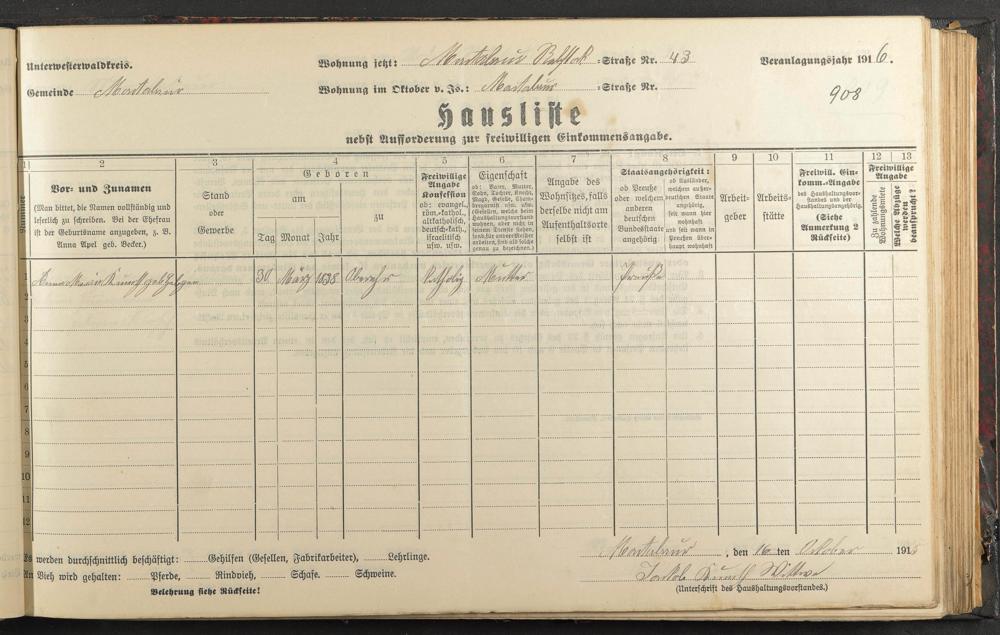 Unterwesterwaldkreis.
Wohnung jetzt: Montabaur :Straße Nr. 43
Veranlagungsjahr 1916.
Gemeinde Montabaur
Wohnung im Oktober v. Js.: Montabaur :Straße Nr.
908
Hausliste
nebst Aufforderung zur freiwilligen Einkommensangabe.
1 2 3 4 5 6 7 8 9 10 11 12 13
Nummer
Vor- und Zunamen
(Man bittet, die Namen vollständig und
leserlich zu schreiben. Bei der Ehefrau
ist der Geburtsname anzugeben, z. B.
Anna Apel geb. Becker.)
Stand
oder
Gewerbe
Geboren
am
zu
Tag Monat Jahr
Freiwillige
Angabe
Konfession
ob: evangel.,
röm.-kathol.,
altkatholisch,
deutsch-kath.,
israelitisch
usw. usw.
Eigenschaft
ob: Vater, Mutter,
Sohn, Tochter, Knecht,
Magd, Geselle, Chambregarnist usw. usw.
(Gesellen, welche beim
Haushaltungsvorstand
wohnen, aber nicht in
seinem Dienste stehen,
sond. für andere Meister
arbeiten, sind als solche
genau zu bezeichnen.)
Angabe des
Wohnsitzes, falls
derselbe nicht am
Aufenthaltsorte
selbst ist
Staatsangehörigkeit:
ob Preuße
oder welchem
anderen
deutschen
Bundesstaate
angehörig
ob Ausländer,
welchem außerdeutschen Staate
angehörig,
seit wann hier
wohnhaft und
seit wann in
Preußen überhaupt wohnhaft
Arbeit-
geber
Arbeits-
stätte
Freiwill. Ein-
komm.-Angabe
des Haushaltungsvorstandes und der
Haushaltungsangehörig.
(Siehe
Anmerkung 2
Rückseite)
Freiwillige
Angabe
Zu zahlende
Wohnungsmiete
Welche Abzüge
werden
beansprucht?
1 Anna Maria geb. 30 März 1838 Katholig Mutter Preuße
2
3
4
5
6
7
8
9
10
11
12
Es werden durchschnittlich beschäftigt: Gehilfen (Gesellen, Fabrikarbeiter), Lehrlinge.
An Vieh wird gehalten: Pferde, Rindvieh, Schafe. Schweine.
Belehrung siehe Rückseite!
Montabaur, den 16 ten October 1915
Jakob Wittwe
(Unterschrift des Haushaltungsvorstandes.)